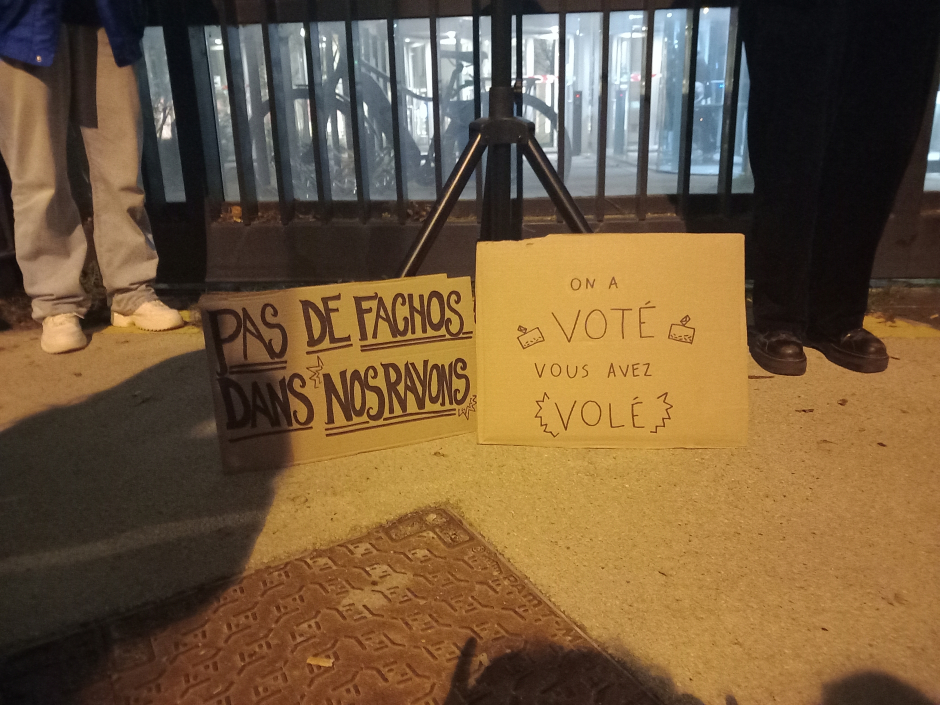 PAS DE FACHOS
DANS NOS RAYONS
ON A
VOTÉ
VOUS AVEZ
VOLÉ